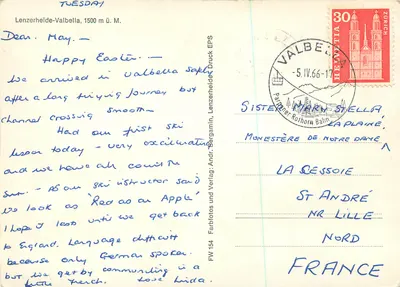 TUESDAY
Lenzerheide-Valbella, 1500 m ü. M.
Dear May —
Happy Easter —
We arrived in Valbella safely
after a long tiring journey but
channel crossing smooth —
Had our first ski
lesson today — very excruciating
and we have all caught the
Sun. — As our ski instructor said
we look as 'Red as an Apple'
I hope it lasts until we get back
to England. Language difficult
because only German spoken
but we get by communing in a
little French. Love Linda.
Farbfotos und Verlag: Andr. Bergamin, Lenzerheide / Druck: EPS
PW 154
VALBELLA
-5.IV.66-17
Parpaner Rothorn Bahn
HELVETIA
30
ZÜRICH
SISTER MARY STELLA
LAPLAINE,
MONESTÈRE DE NOTRE DAME
LA BESSOIE
ST ANDRÉ
NR LILLE
NORD
FRANCE